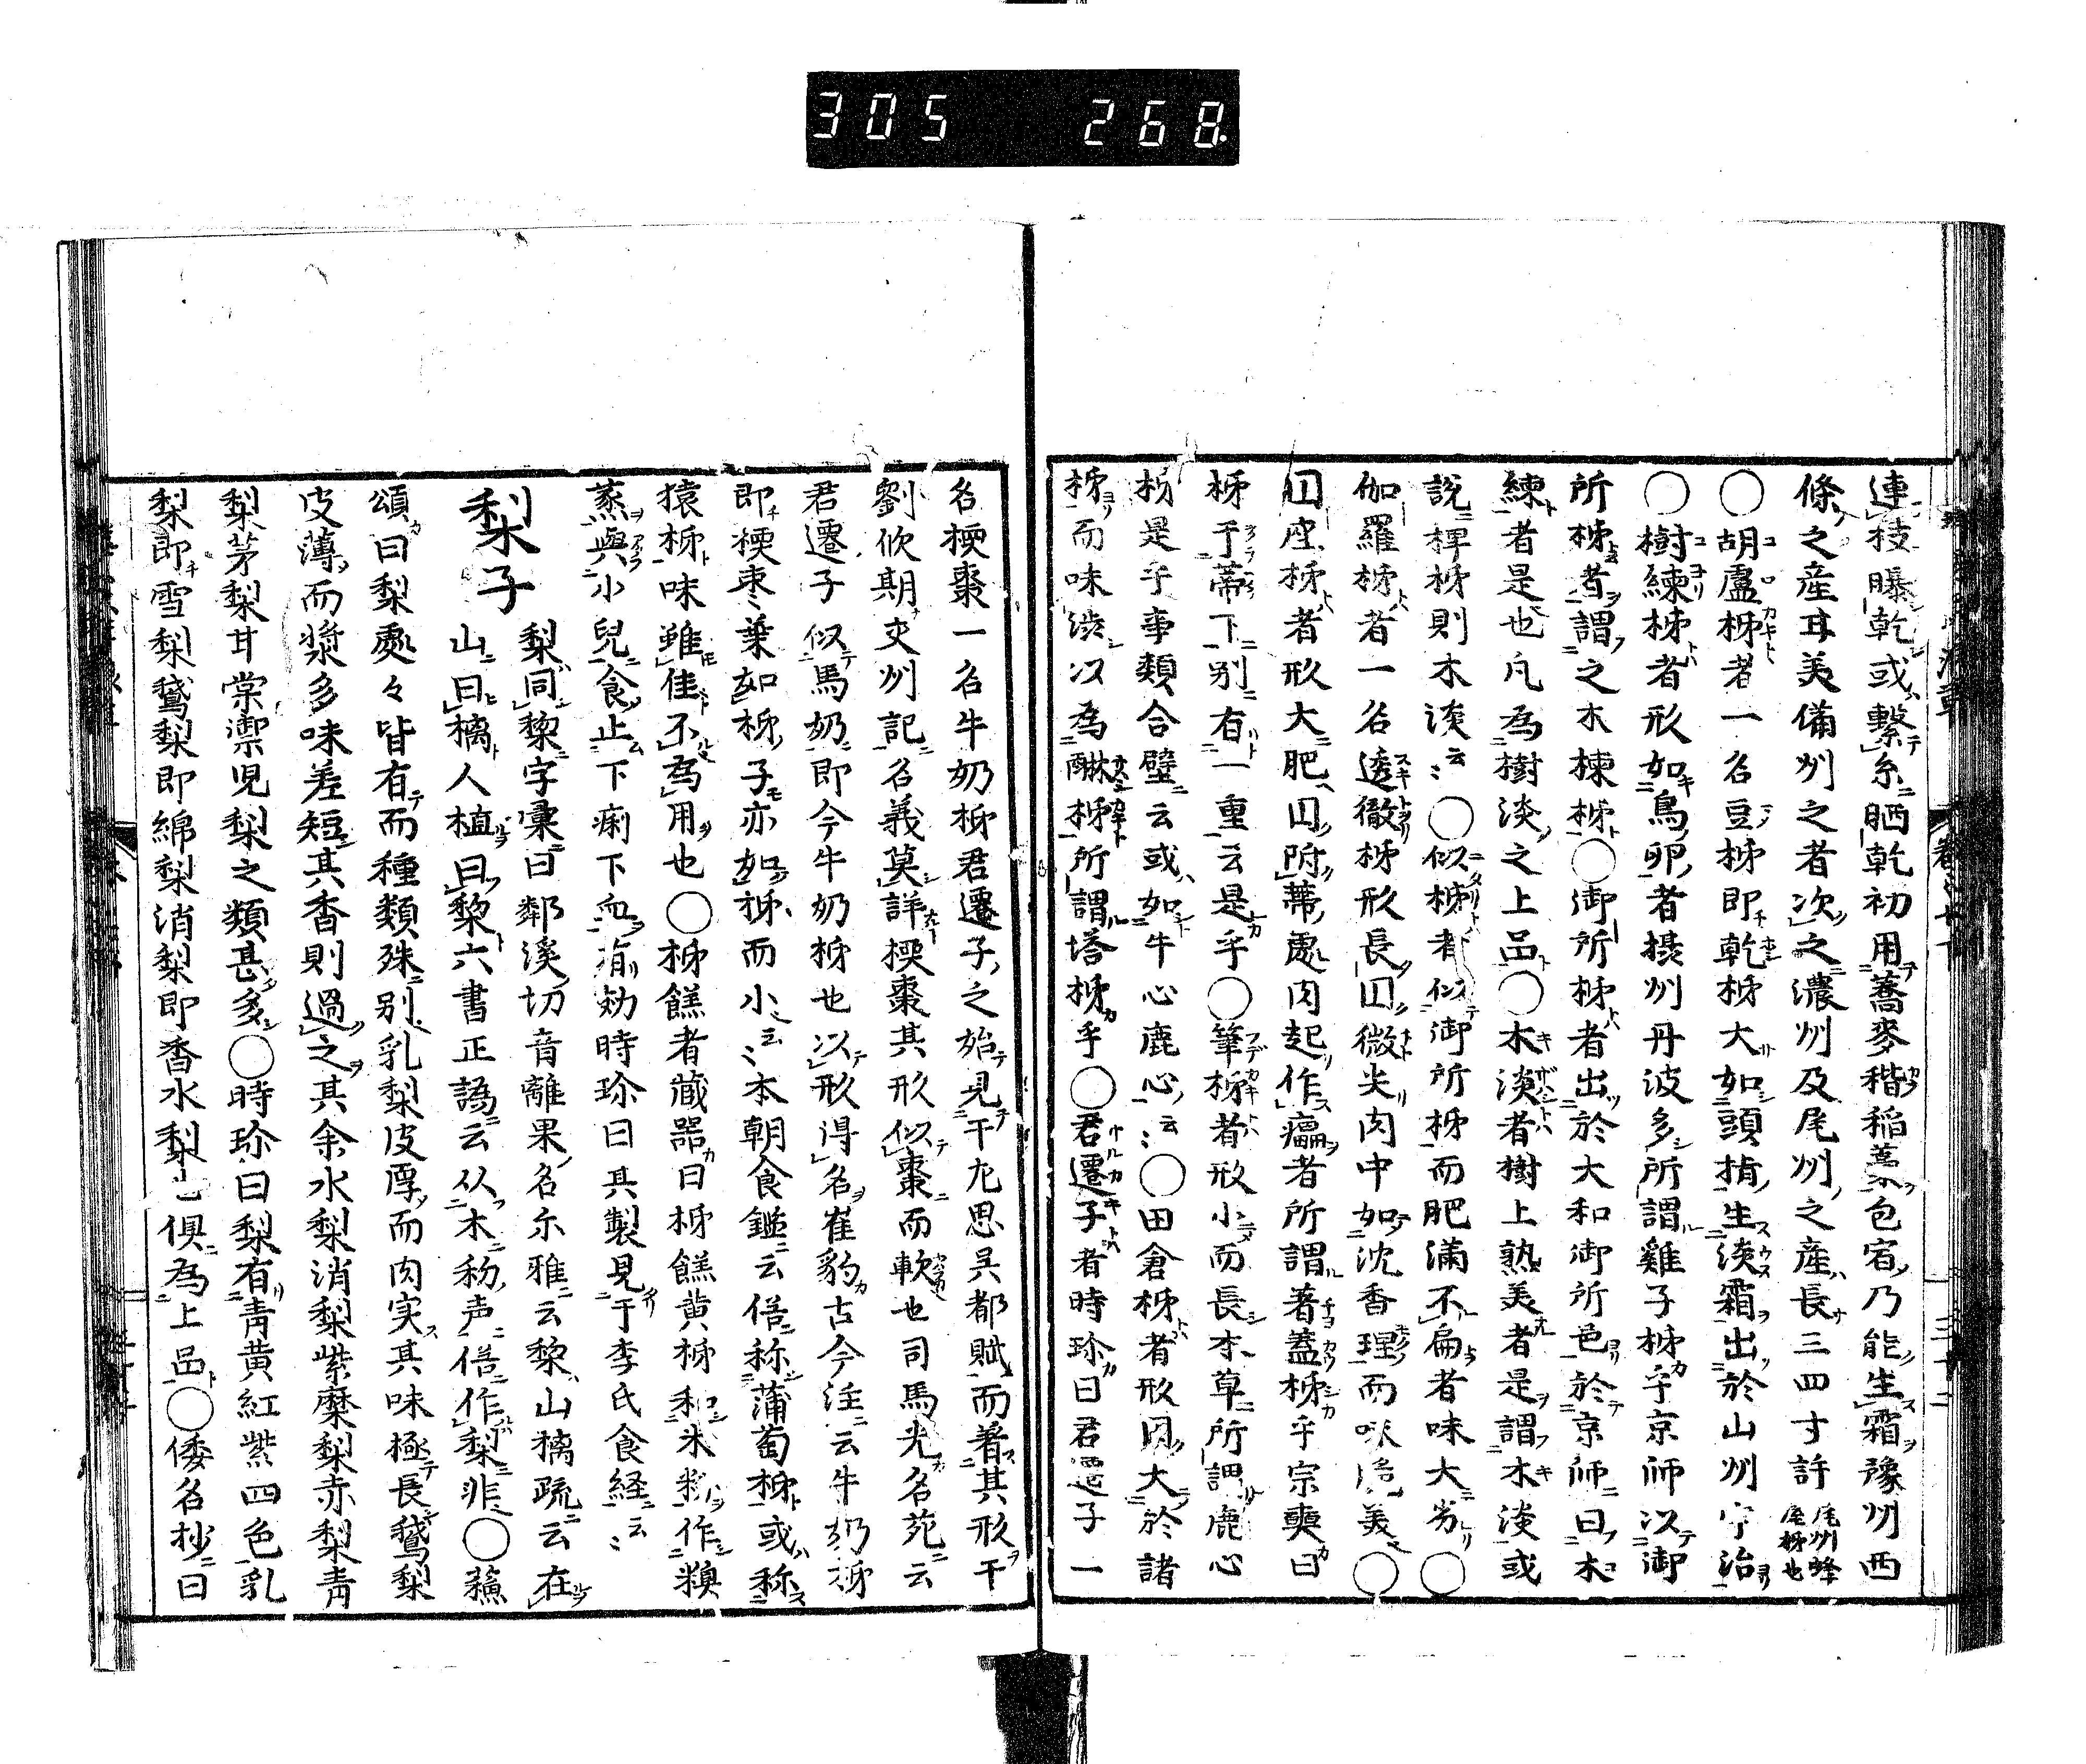 305 268
連枝曝乾或繫糸晒乾初用蕎麥稭稲藁包宿乃能生霜豫州西
條之産耳美備州之者次之濃州及尾州之産長三四寸許尾州蜂屋柹也
○胡盧柹者一名豆柹即乾柹大如頭指生淡霜出於山州宇治
○樹練柹者形如鳥卵者摂州丹波多所謂雞子柹乎京師以御
所柹者謂之木棟柹○御所柹者出於大和御所邑於京師曰木
練者是也凡為樹淡之上品○木淡者樹上熟美者是謂木淡或
説椑柹則木淡云〻○似柹者似御所柹而肥満不扁者味大劣○
伽羅柹者一名透徹柹形長円微尖肉中如沈香理而味美○
円座柹者形大肥円附蒂處肉起作癟者所謂著蓋柹乎宗奭曰
柹于蒂下別有一重云是乎○筆柹者形小而長本草所謂鹿心
柹是乎事類合璧云或如牛心鹿心云〻○田倉柹者形円大於諸
柹而味渋以為醂柹所謂塔柹乎○君遷子者時珍曰君遷子一
名㮕棗一名牛奶柹君遷子之始見于左思呉都賦而著其形于
劉欣期交州記名義莫詳㮕棗其形似棗而軟也司馬光名苑云
君遷子似馬奶即今牛奶柹也以形得名崔豹古今注云牛奶柹
即㮕棗葉如柹子亦如柹而小云〻本朝食鑑云俗称蒲萄柹或称
猿柹味雖佳不為用也○柹餻者藏器曰柹餻黄柹和米粉作糗
蒸與小兒食止下痢下血有効時珍曰其製見于李氏食経云〻
梨子 梨同棃字彙曰鄰溪切音離果名尓雅云棃山樆疏云在
山曰樆人植曰棃六書正譌云从木称声俗作梨非○蘓
頌曰梨處々皆有而種類殊別乳梨皮厚而肉実其味極長鵞梨
皮薄而漿多味差短其香則過之其余水梨消梨紫糜梨赤梨青
梨茅梨甘棠禦児梨之類甚多○時珍曰梨有青黄紅紫四色乳
梨即雪梨鵞梨即綿梨消梨即香水梨也俱為上品○倭名抄曰